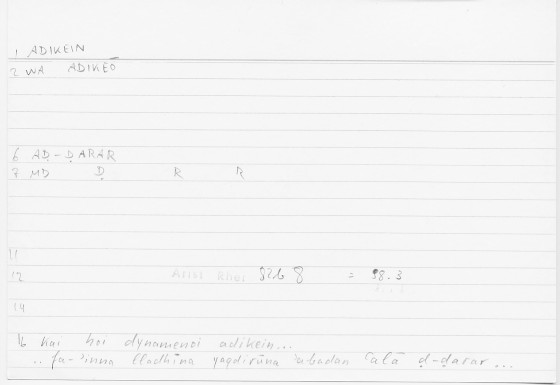 1 ADIKEIN
2 WA ADIKEŌ
6 AḌ-ḌARAR
7 MD Ḍ R R
11
12 Arist Rhet 82b 8 = 98.3
14
16 kai hoi dynamenoi adikein...
.. fa-ʾinna lladhīna yaqdirūna ʾabadan ʿalā ḍ-ḍarar ...